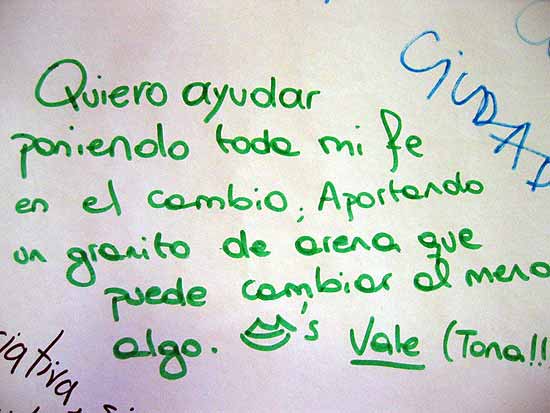 Quiero ayudar
poniendo toda mi fe
en el cambio, Aportando
un granito de arena que
puede cambiar al meno
algo. 's Vale (Tona!!
CIUDAD
ciativa